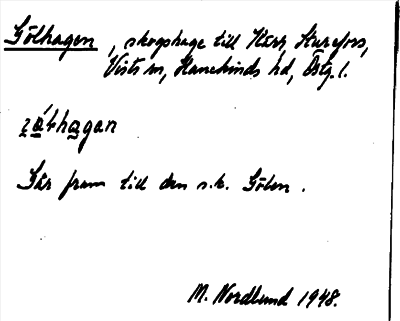 Gölhagen, skogshage till Hårs, Sturefors,
Vists sn, Hanekinds hd, Östg. l.
Går fram till den s.k. Gölen.
M. Nordlund 1948.